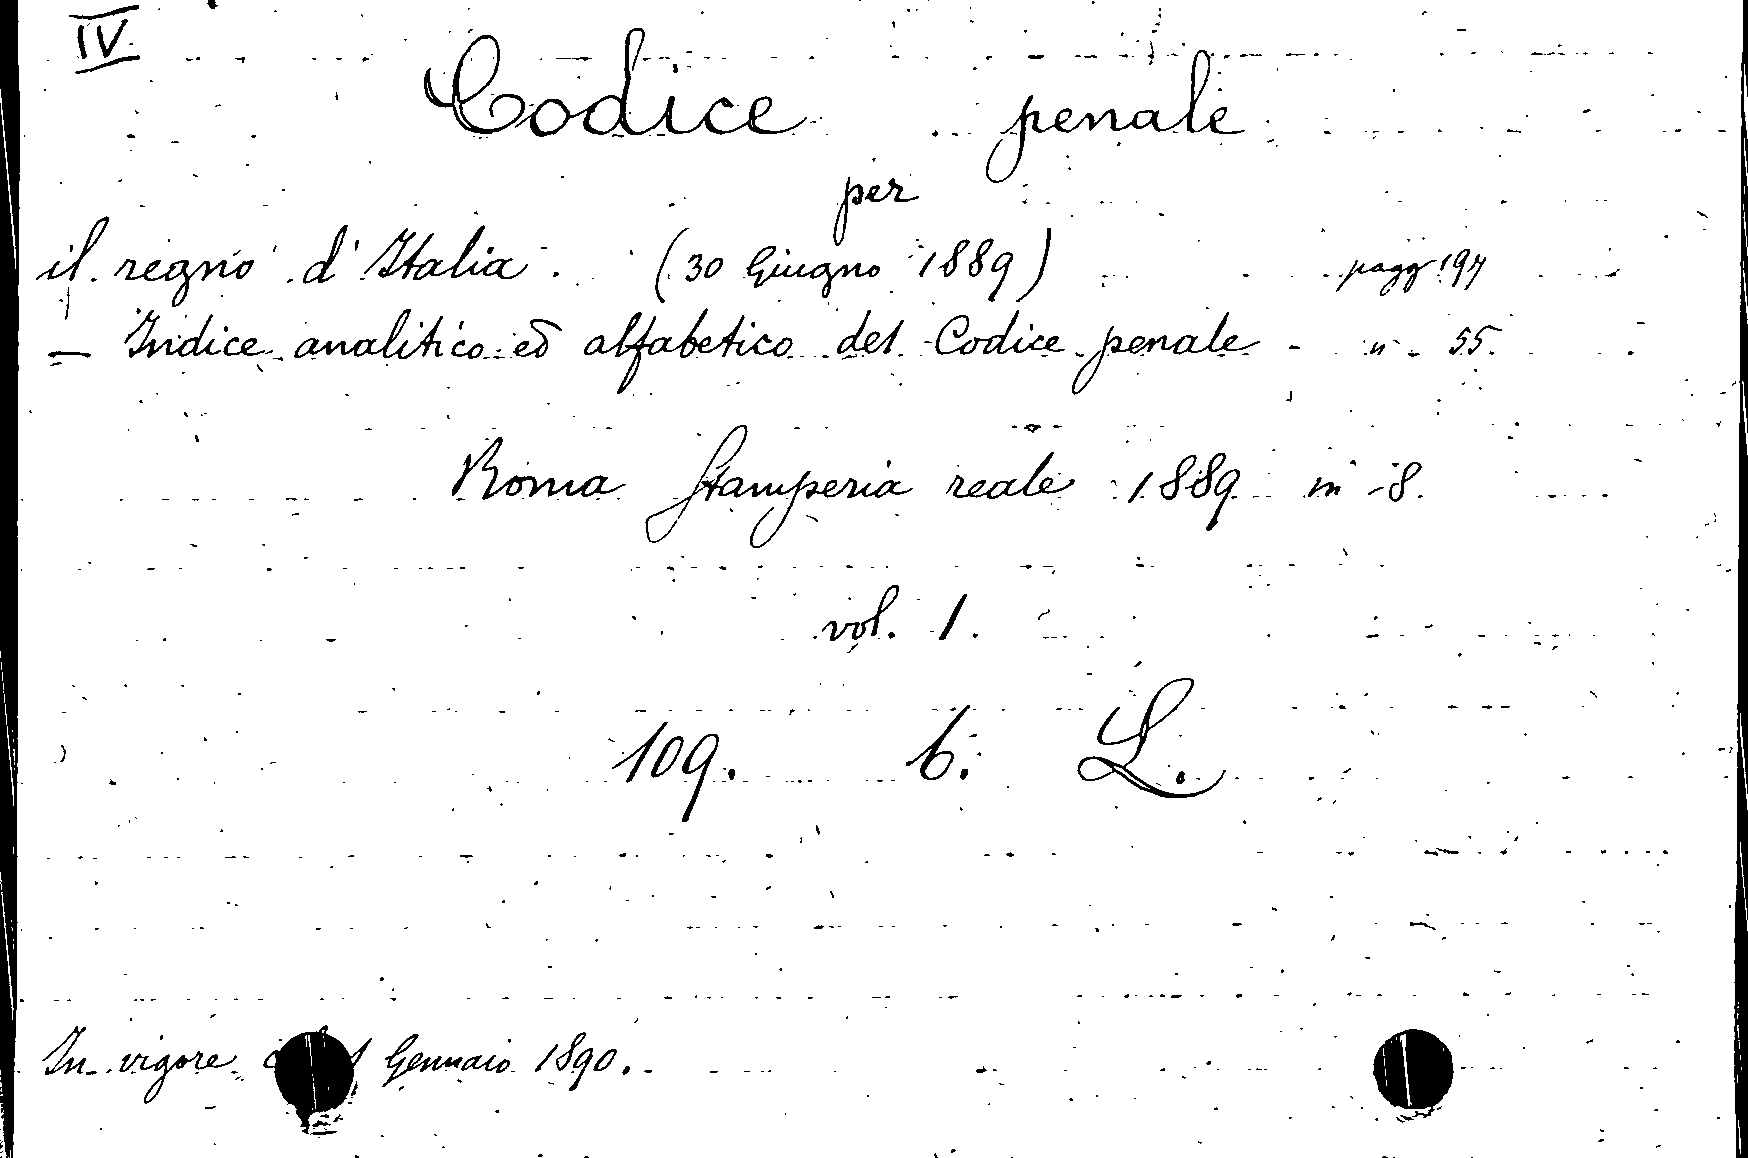 IV
Codice penale
per
il regno d'Italia. (30 Giugno 1889) pagg 194
— Indice analitico ed alfabetico del Codice penale - " - 55.
Roma Stamperia reale 1889 in-8.
vol. 1.
109. 6. L.
In vigore 1 Gennaio 1890.